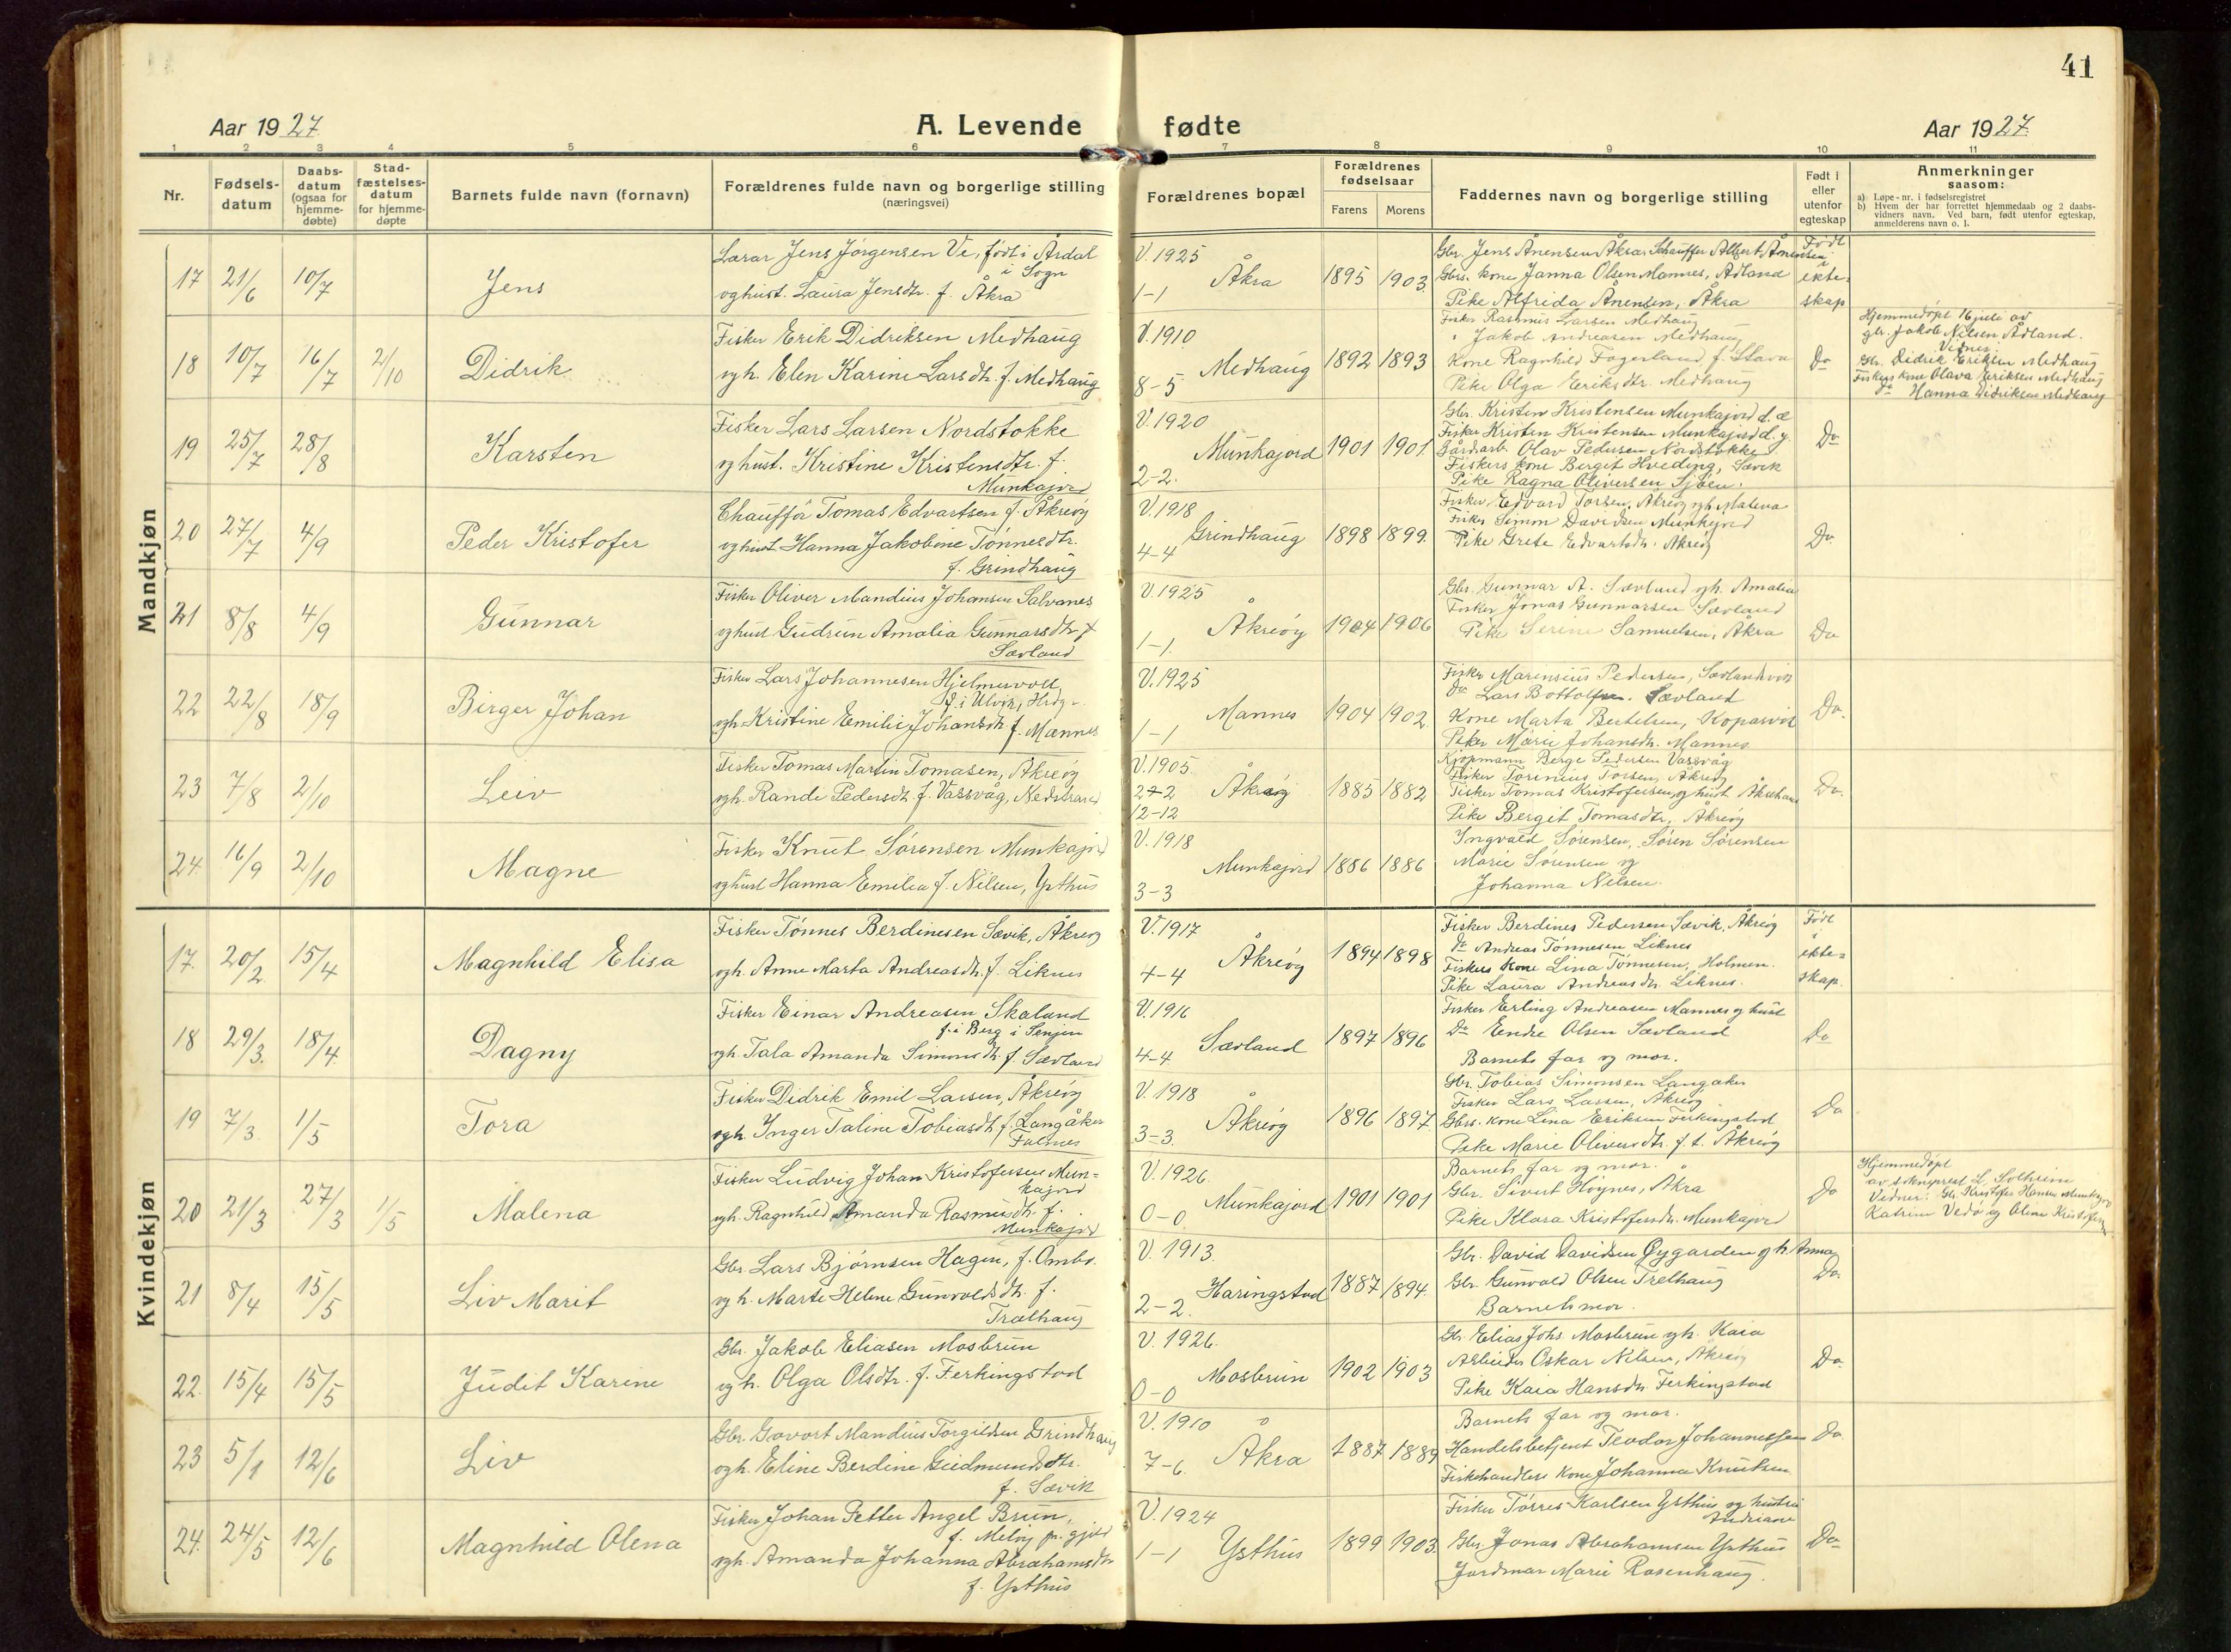 41
Aar 1927.
A. Levende fødte
Aar 1927.
1 2 3 4 5 6 7 8 9 10 11
Nr.
Fødsels-
datum
Daabs-
datum
(ogsaa for
hjemme-
døbte)
Stad-
fæstelses-
datum
for hjemme-
døpte
Barnets fulde navn (fornavn)
Forældrenes fulde navn og borgerlige stilling
(næringsvei)
Forældrenes bopæl
Forældrenes
fødselsaar
Farens Morens
Faddernes navn og borgerlige stilling
Født i
eller
utenfor
egteskap
Anmerkninger
saasom:
a) Løpe-nr. i fødselsregistret
b) Hvem der har forrettet hjemmedaab og 2 daabs-
vidners navn. Ved barn, født utenfor egteskap,
anmelderens navn o. l.
Mandkjøn
17 21/6 10/7 Jens
Lærar Jens Jørgensen Ve, født i Årdal
i Sogn
og hust. Laura Jensdtr. f. Åkra
V. 1925
1-1
Åkra 1895 1903
Gbr. Jens Ånensen Åkra, Schauffør Albert Ånensen
Gbrs. kone Janna Olsen Mannes, Ådland
Pike Alfrida Ånensen, Åkra
Født
i
ekte-
skap
18 10/7 16/7 2/10 Didrik
Fisker Erik Didriksen Medhaug
og h. Elen Karine Larsdtr. f. Medhaug
V. 1910
8-5
Medhaug 1892 1893
Fisker Rasmus Larsen Medhaug
" Jakob Andreasen Medhaug
Kone Ragnhild Fagerland f. Stava
Pike Olga Eriksdtr. Medhaug
Do
Hjemmedøpt 16 juli av
gbr. Jakob Nilsen Ådland.
Vidner:
Gbr. Didrik Eriksen Medhaug
Fiskers kone Olava Eriksen Medhaug
Do Hanna Didriksen Medhaug
19 25/7 28/8 Karsten
Fisker Lars Larsen Nordstokke
og hust. Kristine Kristensdtr. f.
Munkajord
V. 1920
2-2.
Munkajord 1901 1901
Gbr. Kristen Kristensen Munkajord d. æ
Fisker Kristen Kristensen Munkajord d. y.
Gårdarb. Olav Pedersen Nordstokke
Fiskers kone Berget Hveding, Sævik
Pike Ragna Oliversen Sjøen.
Do
20 27/7 4/9 Peder Kristofer
Chauffør Tomas Edvartsen f. Åkreøy
og hust. Hanna Jakobine Tønnesdtr.
f. Grindhaug
V. 1918
4-4
Grindhaug 1898 1899.
Fisker Edvard Torsen, Åkreøy og h. Malena
Fisker Simon Davidsen Munkajord
Pike Grete Edvartsdtr. Åkreøy
Do.
21 8/8 4/9 Gunnar
Fisker Oliver Mandius Johansen Salvanes
og hust Gudrun Amalia Gunnarsdtr. f
Sævland
V. 1925
1-1.
Åkreøy 1904 1906
Gbr. Gunnar A. Sævland og h. Amalia
Fisker Jonas Gunnarsen Sævland
Pike Serine Samuelsen, Åkra
Do
22 22/8 18/9 Birger Johan
Fisker Lars Johannesen Hjelmevoll
f. i Ulvik, Hrdg.
og h. Kristine Emilie Johansdtr. f. Mannes
V. 1925
1-1
Mannes 1904 1902
Fisker Marensius Pedersen, Sævlandsvik
Do Lars Bottolfsen. Sævland
Kone Marta Bertelsen, Kopervik
Pike Marie Johansdtr. Mannes
Do.
23 7/8 2/10 Leiv
Fisker Tomas Martin Tomasen, Åkreøy
og h. Rande Pedersdtr. f. Vassvåg, Nedstrand
V. 1905.
2+2
12-12
Åkreøy 1885 1882
Kjøpmann Berge Pedersen Vassvåg
Fisker Torinius Torsen, Åkreøy
Fisker Tomas Kristofersen og hust Åkrehavn
Pike Bergit Tomasdtr, Åkreøy
Do.
24. 16/9 2/10 Magne
Fisker Knut Sørensen Munkajord
og hust Hanna Emilea f. Nilsen, Ysthus
V. 1918
3-3
Munkajord 1886 1886
Ingvald Sørensen, Søren Sørensen
Marie Sørensen og
Johanna Nilsen.
Kvindekjøn
17. 20/2 15/4 Magnhild Elisa
Fisker Tønnes Berdinesen Sævik, Åkreøy
og h. Anne Marta Andreasdtr. f. Liknes
V. 1917
4-4
Åkreøy 1894 1898
Fisker Berdines Pedersen Sævik, Åkreøy
Do Andreas Tønnesen Liknes
Fiskers kone Lina Tønnesen, Holmen.
Pike Laura Andreasdtr. Liknes.
Født
i
ekte-
skap.
18 29/3. 18/4. Dagny
Fisker Einar Andreasen Skaland
f. i Berg i Senjen
og h. Tala Amanda Simonsdtr. f. Sævland
V. 1916
4-4.
Sævland 1897 1896
Fisker Erling Andreasen Mannes og hust
Do Endre Olsen Sævland
Barnets far og mor.
Do
19 7/3. 1/5 Tora
Fisker Didrik Emil Larsen, Åkreøy
og h. Inger Taline Tobiasdtr. f. Langåker
Falnes
V. 1918
3-3.
Åkreøy 1896 1897.
Gbr. Tobias Simonsen Langåker
Fisker Lars Larsen, Åkreøy
Gbrs. kone Lina Eriksen Ferkingstad
Pike Marie Oliversdtr. f. t. Åkreøy
Do
20 21/3 27/3 1/5 Malena
Fisker Ludvig Johan Kristofersen Mun=
kajord
og h. Ragnhild Amanda Rasmusdtr. f.
Munkajord
V. 1926.
0-0
Munkajord 1901 1901
Barnets far og mor.
Gbr. Sivert Høynes, Åkra
Pike Klara Kristofersdtr. Munkajord
Do
Hjemmedøpt
av sokneprest L. Solheim
Vidner: Gbr. Kristofer Hansen Munkajord
Katrine Vedø og Oline Kristofersen
21 8/4 15/5 Liv Marit
Gbr. Lars Bjørnsen Hagen, f. Ombo.
og h. Marte Helene Gunvoldsdtr. f.
Trælhaug
V. 1913.
2-2.
Haringstad 1887 1894.
Gbr. David Davidsen Øygarden og h. Anna
Gbr. Gunvald Olsen Trælhaug
Barnets mor.
Do.
22. 15/4 15/5 Judit Karine
Gbr. Jakob Eliasen Mosbrun
og h. Olga Olsdtr. f. Ferkingstad
V. 1926.
0-0
Mosbrun 1902 1903
Gbr Elias Johs. Mosbrun og h. Kaia
Arbeider Oskar Nilsen, Åkreøy
Pike Kaia Hansdtr. Ferkingstad
Do.
23 5/1 12/6 Liv
Gbr. Govort Mandius Torgilsen Grindhaug
og h. Eline Berdine Gudmundsdtr.
f. Sævik
V. 1910
7-6.
Åkra 1887 1889
Barnets far og mor.
Handelsbetjent Teodor Johannessen
Fiskehandlers kone Johanna Knutsen
Do.
24. 24/5 12/6 Magnhild Olena
Fisker Johan Petter Angel Brun,
f. Meløy pr. gjeld
og h. Amanda Johanna Abrahamsdtr
f. Ysthus
V. 1924
1-1
Ysthus 1899 1903.
Fisker Tørres Karlsen Ysthus og hustru
Andriane
Gbr. Jonas Abrahamsen Ysthus
Jordmor Marie Rosenhaug.
Do